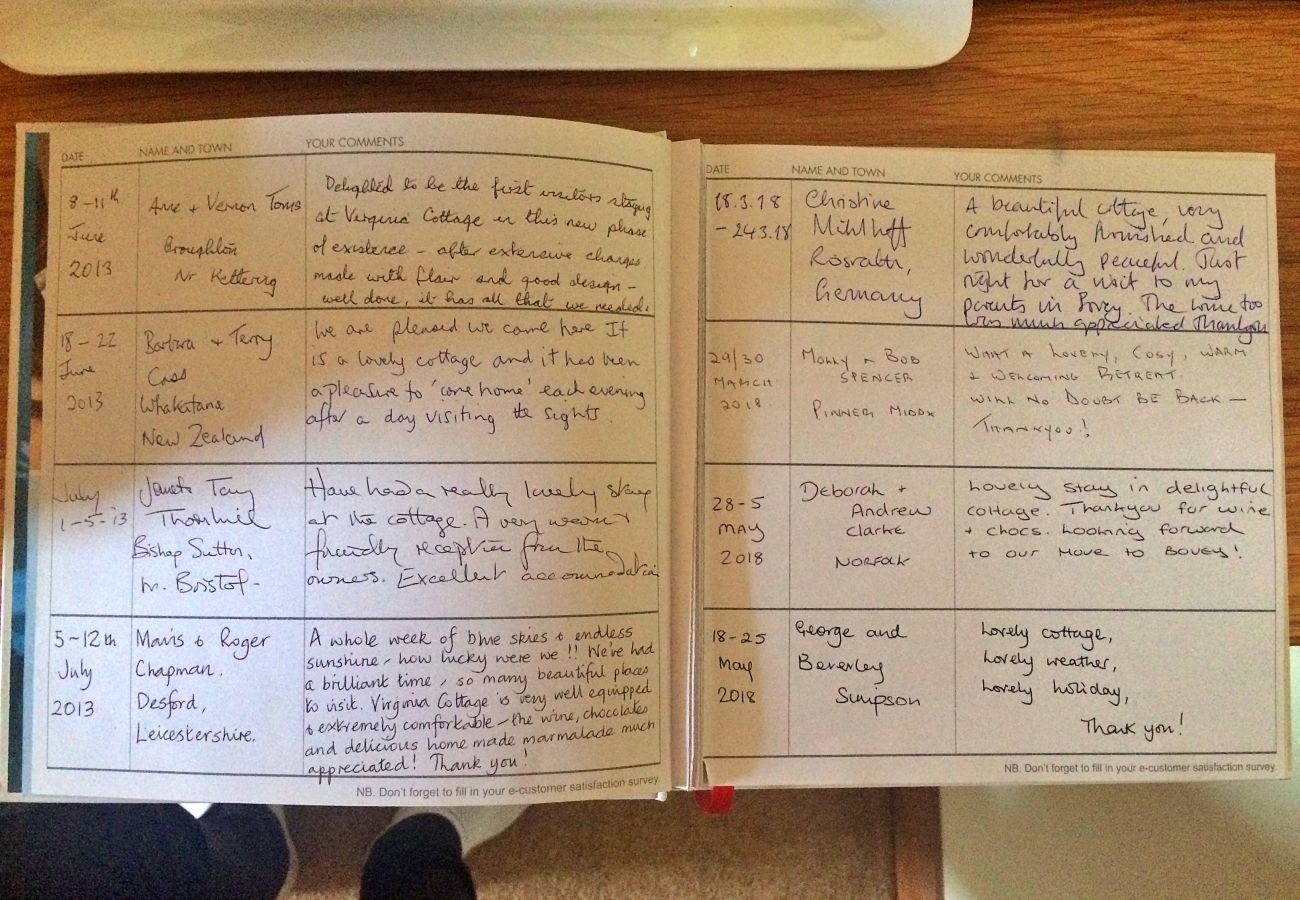 DATE NAME AND TOWN YOUR COMMENTS
8-11th
June
2013
Anne + Vernon Toms
Broughton
Nr Kettering
Delighted to be the first visitors staying
at Virginia Cottage in this new phase
of existence - after extensive changes
made with flair and good design -
well done, it has all that we needed.
18-22
June
2013
Barbara + Terry
Cass
Whakatane
New Zealand
We are pleased we came here It
is a lovely cottage and it has been
a pleasure to 'come home' each evening
after a day visiting the sights.
July
1-5-13
Tony
Bishop Sutton,
Nr. Bristol-
Have had a really lovely stay
at the cottage. A very warm +
friendly reception from the
owners. Excellent accommodation
5-12th
July
2013
Mavis & Roger
Chapman.
Desford,
Leicestershire.
A whole week of blue skies & endless
sunshine, how lucky were we!! We've had
a brilliant time, so many beautiful places
to visit. Virginia Cottage is very well equipped
& extremely comfortable - the wine, chocolates
and delicious home made marmalade much
appreciated! Thank you!
NB. Don't forget to fill in your e-customer satisfaction survey.
DATE NAME AND TOWN YOUR COMMENTS
18.3.18
- 24.3.18
Christine
Mühlhoff
Rösrath,
Germany
A beautiful cottage, very
comfortably furnished and
wonderfully peaceful. Just
right for a visit to my
parents in Bovey. The wine too
was much appreciated Thankyou
29/30
MARCH
2018
MOLLY & BOB
SPENCER
PINNER MIDDX
WHAT A LOVELY, COSY, WARM
+ WELCOMING RETREAT.
WILL NO DOUBT BE BACK -
THANKYOU!
28-5
MAY
2018
Deborah +
Andrew
Clarke
NORFOLK
Lovely stay in delightful
cottage. Thankyou for wine
+ chocs. Looking forward
to our move to Bovey!
18-25
May
2018
George and
Beverley
Simpson
Lovely cottage,
Lovely weather,
Lovely holiday,
Thank you!
NB. Don't forget to fill in your e-customer satisfaction survey.